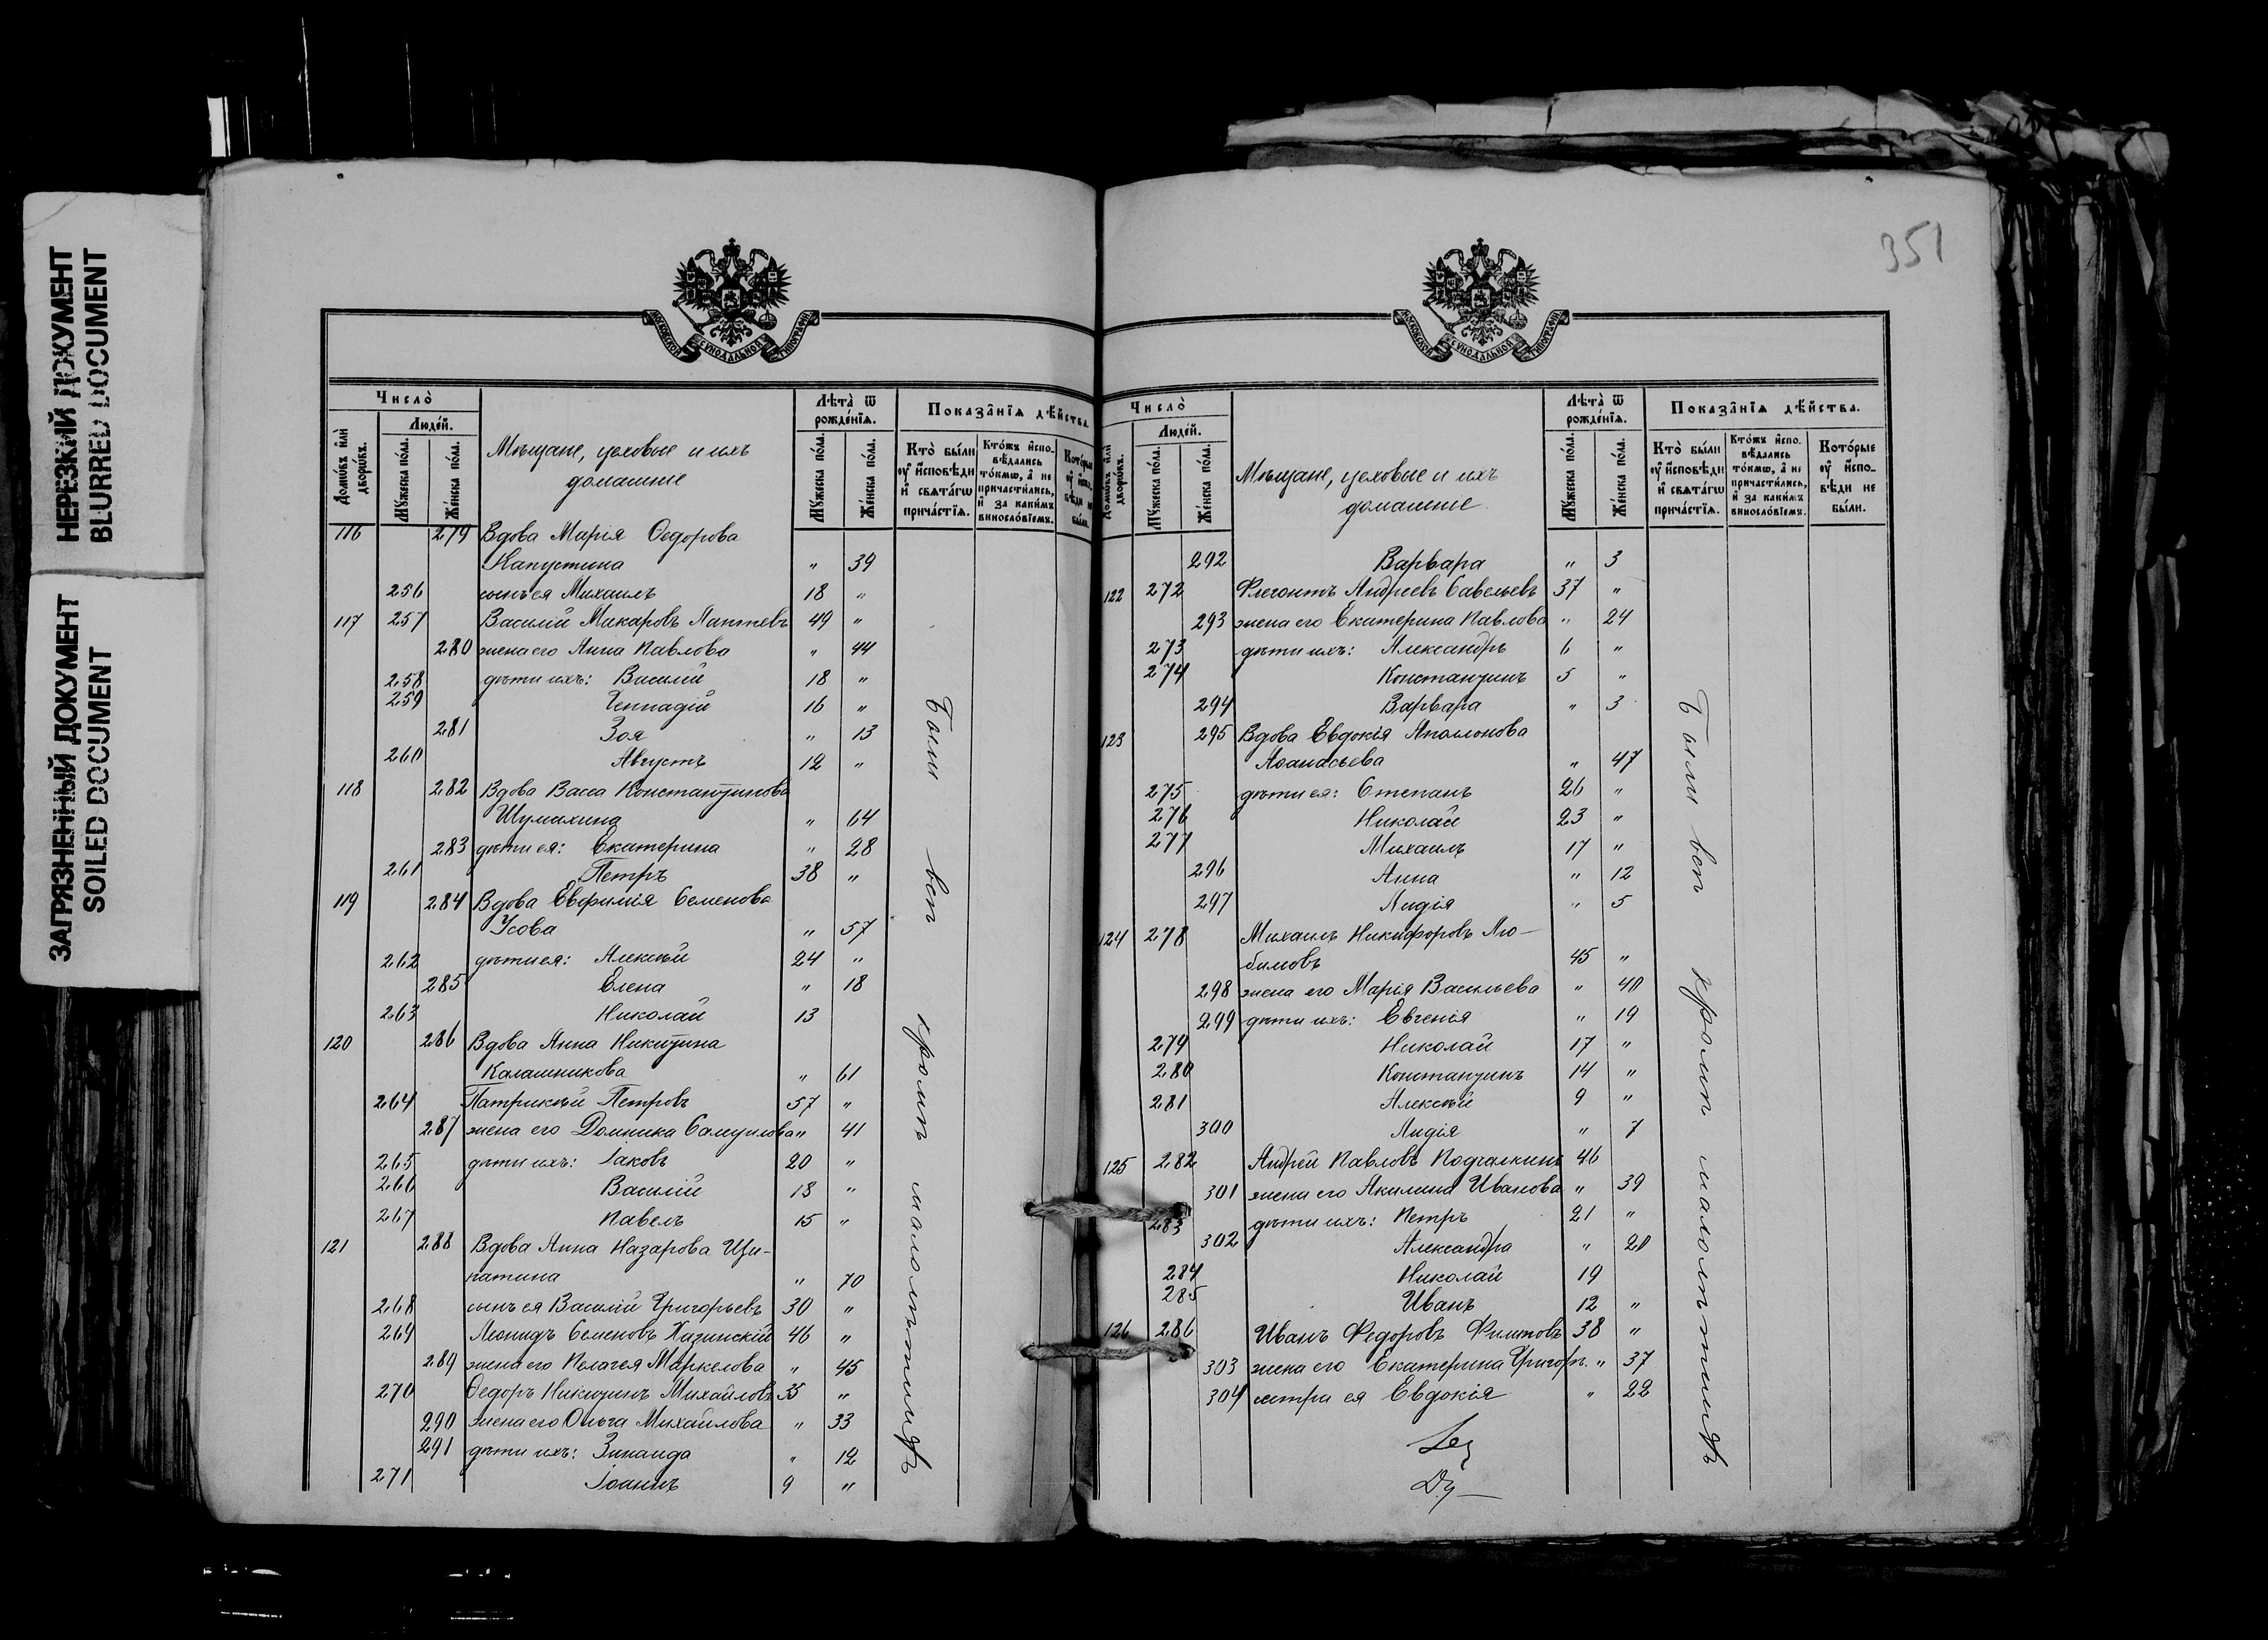 НЕРЕЗКИЙ ДОКУМЕНТ
BLURRED DOCUMENT
ЗАГРЯЗНЕННЫЙ ДОКУМЕНТ
SOILED DOCUMENT
МОСКОВСКОЙ СѴНОДАЛЬНОЙ ТИПОГРАФІИ
Число̀
Домѡвъ и҆лѝ дворѡ́въ.
Люде́й.
Мꙋ́жеска по́ла.
Же́нска по́ла.
Мѣщане, цеховые и ихъ
домашніе
Лѣта̀ ѿ рожде́нїѧ.
Мꙋ́жеска по́ла.
Же́нска по́ла.
Показа̑нїѧ дѣ́йства.
Кто̀ бы́ли
ᲂу҆ и҆сповѣ́ди
и҆ свѧта́гѡ
прича́стїѧ.
Кто́жъ и҆спо-
вѣ́дались
то́кмѡ, а҆ не
причасти́лись,
и҆ за каки́мъ
винословїемъ.
Кото́рые
ᲂу҆ и҆спо-
вѣ́ди не
бы́ли.
116 279 Вдова Марія Ѳедорова
Капустина " 39
256 сынъ ея Михаилъ 18 "
117 257 Василій Макаровъ Лаптевъ 49 "
280 жена его Анна Павлова " 44
258 дѣти ихъ: Василій 18 "
259 Геннадій 16 "
281 Зоя " 13
260 Августъ 12 "
118 282 Вдова Васса Константинова
Шумихина " 64
283 дѣти ея: Екатерина " 28
261 Петръ 38 "
119 284 Вдова Евфимія Семенова
Усова " 57
262 дѣти ея: Алексѣй 24 "
285 Елена " 18
263 Николай 13
120 286 Вдова Анна Никитина
Калашникова " 61
264 Патрикѣй Петровъ 57 "
287 жена его Домника Самуилова " 41
265 дѣти ихъ: Іаковъ 20 "
266 Василій 18 "
267 Павелъ 15 "
121 288 Вдова Анна Назарова Щи-
патина " 70
268 сынъ ея Василій Григорьевъ 30 "
269 Леонидъ Семеновъ Хазинскій 46 "
289 жена его Пелагея Маркелова " 45
270 Ѳедоръ Никитинъ Михайловъ 35 "
290 жена его Ольга Михайлова " 33
291 дѣти ихъ: Зинаида " 12
271 Іоаннъ 9 "
Были всѣ кромѣ малолѣтнихъ
351
МОСКОВСКОЙ СѴНОДАЛЬНОЙ ТИПОГРАФІИ
Число̀
Домѡвъ и҆лѝ дворѡ́въ.
Люде́й.
Мꙋ́жеска по́ла.
Же́нска по́ла.
Мѣщане, цеховые и ихъ
домашніе
Лѣта̀ ѿ рожде́нїѧ.
Мꙋ́жеска по́ла.
Же́нска по́ла.
Показа̑нїѧ дѣ́йства.
Кто̀ бы́ли
ᲂу҆ и҆сповѣ́ди
и҆ свѧта́гѡ
прича́стїѧ.
Кто́жъ и҆спо-
вѣ́дались
то́кмѡ, а҆ не
причасти́лись,
и҆ за каки́мъ
винословїемъ.
Кото́рые
ᲂу҆ и҆спо-
вѣ́ди не
бы́ли.
292 Варвара " 3
122 272 Флегонтъ Андреевъ Савельевъ 37 "
293 жена его Екатерина Павлова " 24
273 дѣти ихъ: Александръ 6 "
274 Константинъ 5 "
294 Варвара " 3
123 295 Вдова Евдокія Аполлонова
Аѳанасьева " 47
275 дѣти ея: Степанъ 26 "
276 Николай 23 "
277 Михаилъ 17 "
296 Анна " 12
297 Лидія " 5
124 278 Михаилъ Никифоровъ Лю-
бимовъ 45 "
298 жена его Марія Васильева " 40
299 дѣти ихъ: Евгенія " 19
279 Николай 17 "
280 Константинъ 14 "
281 Алексѣй 9 "
300 Лидія " 7
125 282 Андрей Павловъ Подчалкинъ 46
301 жена его Акилина Иванова " 39
283 дѣти ихъ: Петръ 21 "
302 Александра " 20
284 Николай 19
285 Иванъ 12 "
126 286 Иванъ Федоровъ Филатовъ 38 "
303 жена его Екатерина Григор. " 37
304 сестра ея Евдокія " 22
Были всѣ кромѣ малолѣтнихъ